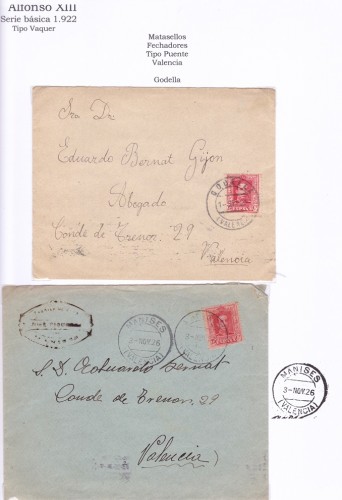 Alfonso XIII
Serie básica 1.922
Tipo Vaquer
Matasellos
Fechadores
Tipo Puente
Valencia
Godella
Eduardo Bernat Gijon
Abogado
Conde de Trenor 29
Valencia
MANISES
3-NOV.26
(VALENCIA)
S. D. Eduardo Bernat
Conde de Trenor, 29
Valencia
MANISES
3-NOV.26
(VALENCIA)